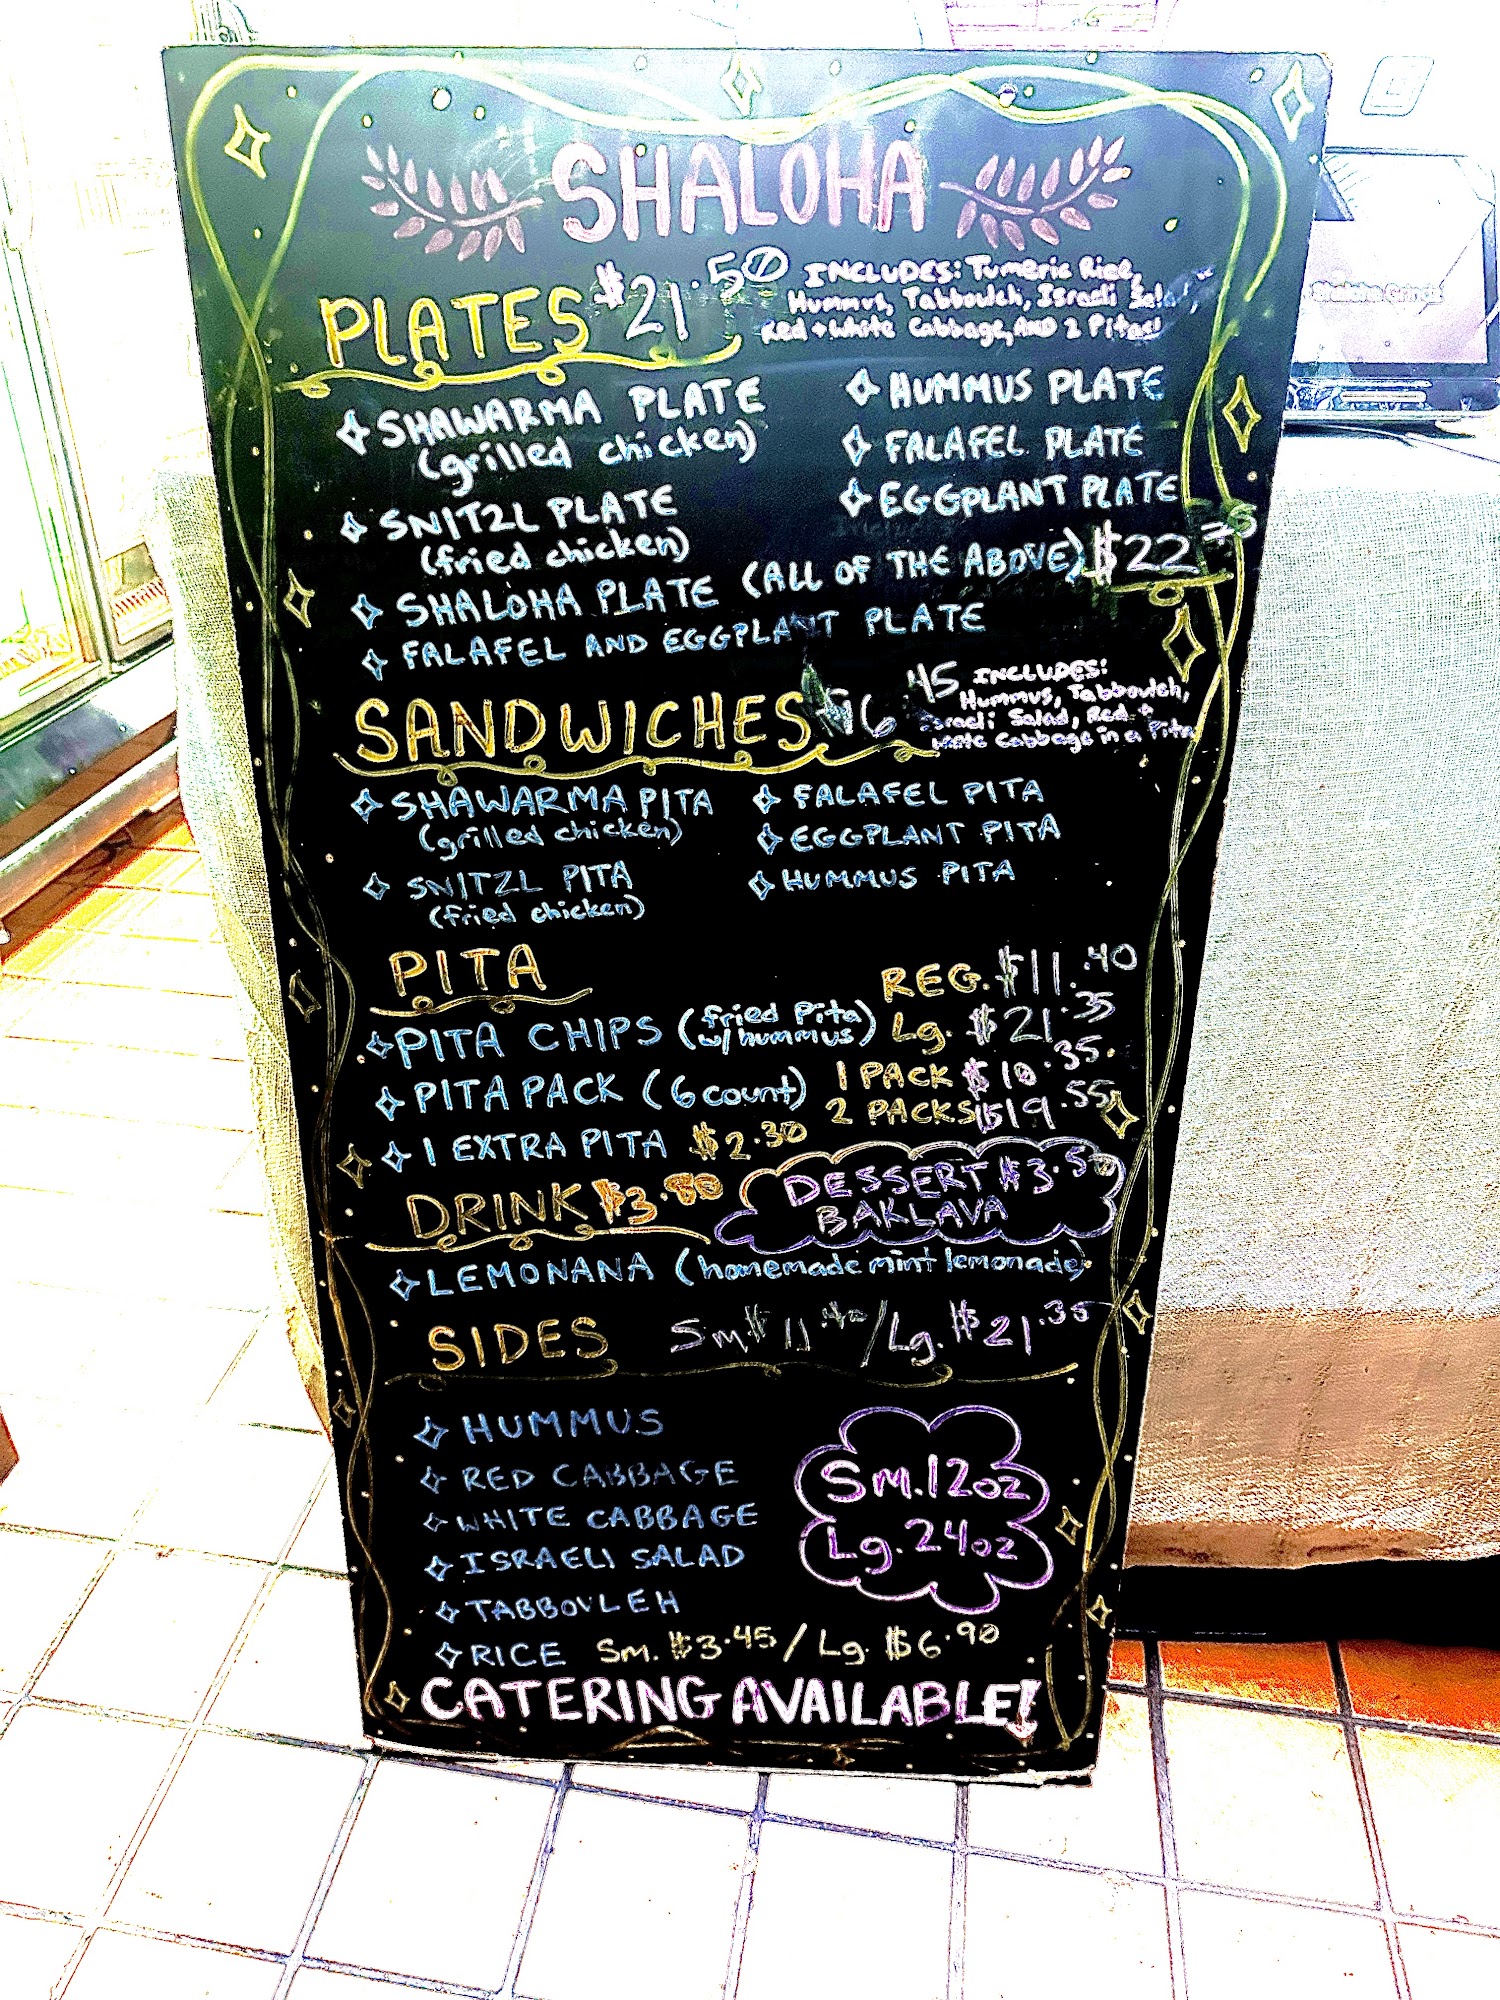 SHALOHA
PLATES $21.50
INCLUDES: Tumeric Rice,
Hummus, Tabbouleh, Israeli
Red + White Cabbage, AND 2 Pitas!
SHAWARMA PLATE
(grilled chicken)
SNITZL PLATE
(fried chicken)
HUMMUS PLATE
FALAFEL PLATE
EGGPLANT PLATE
SHALOHA PLATE (ALL OF THE ABOVE) $22
FALAFEL AND EGGPLANT PLATE
SANDWICHES 16.45
INCLUDES:
Hummus, Tabbouleh,
Israeli Salad, Red +
White Cabbage in a Pita
SHAWARMA PITA
(grilled chicken)
SNITZL PITA
(fried chicken)
FALAFEL PITA
EGGPLANT PITA
HUMMUS PITA
PITA
PITA CHIPS (fried Pita w/hummus) REG. $11.40
Lg. $21.35
PITA PACK (6 count) 1 PACK $10.35
2 PACKS $19.55
1 EXTRA PITA $2.30
DRINK $3.80
DESSERT $3.50
BAKLAVA
LEMONANA (homemade mint lemonade)
SIDES Sm $11.40/Lg. $21.35
HUMMUS
RED CABBAGE
WHITE CABBAGE
ISRAELI SALAD
TABBOULEH
RICE Sm. $3.45/Lg. $6.90
Sm. 12oz
Lg. 24oz
CATERING AVAILABLE!